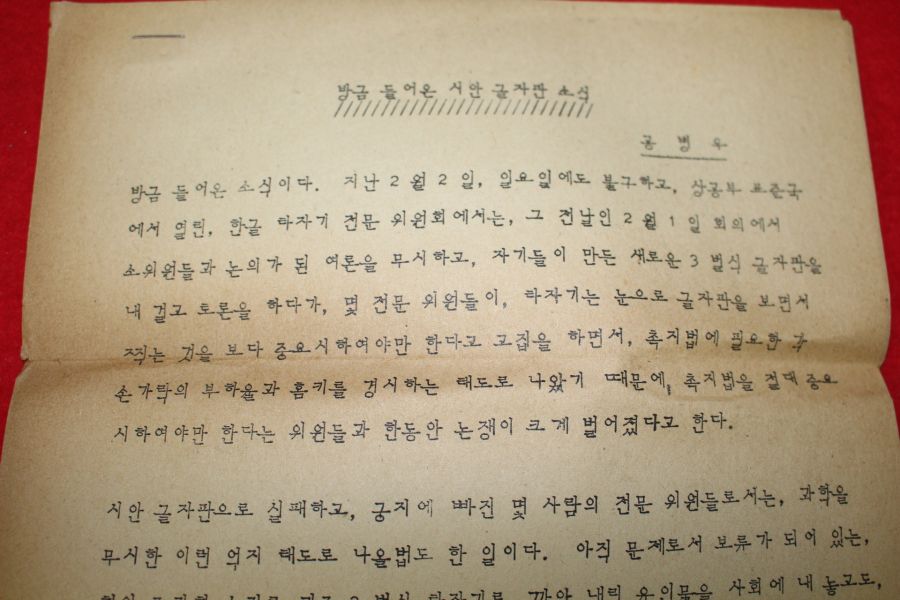 방금 들어온 시안 글자판 소식
공 병 우
방금 들어온 소식이다. 지난 2 월 2 일, 일요일에도 불구하고, 상공부 표준국
에서 열린, 한글 타자기 전문 위원회에서는, 그 전날인 2 월 1 일 회의에서
소위원들과 논의가 된 여론을 무시하고, 자기들이 만든 새로운 3 벌식 글자판을
내 걸고 토론을 하다가, 몇 전문 위원들이, 타자기는 눈으로 글자판을 보면서
찍는 것을 보다 중요시하여야만 한다고 고집을 하면서, 촉지법에 필요한 각
손가락의 부하율과 홈키를 경시하는 태도로 나왔기 때문에, 촉지법을 절대 중요
시하여야만 한다는 위원들과 한동안 논쟁이 크게 벌어졌다고 한다.
시안 글자판으로 실패하고, 궁지에 빠진 몇 사람의 전문 위원들로서는, 과학을
무시한 이런 억지 태도로 나올법도 한 일이다. 아직 문제로서 보류가 되어 있는,
3 벌식 타자기를 까아 내린 유인물을 사회에 내 놓고도,